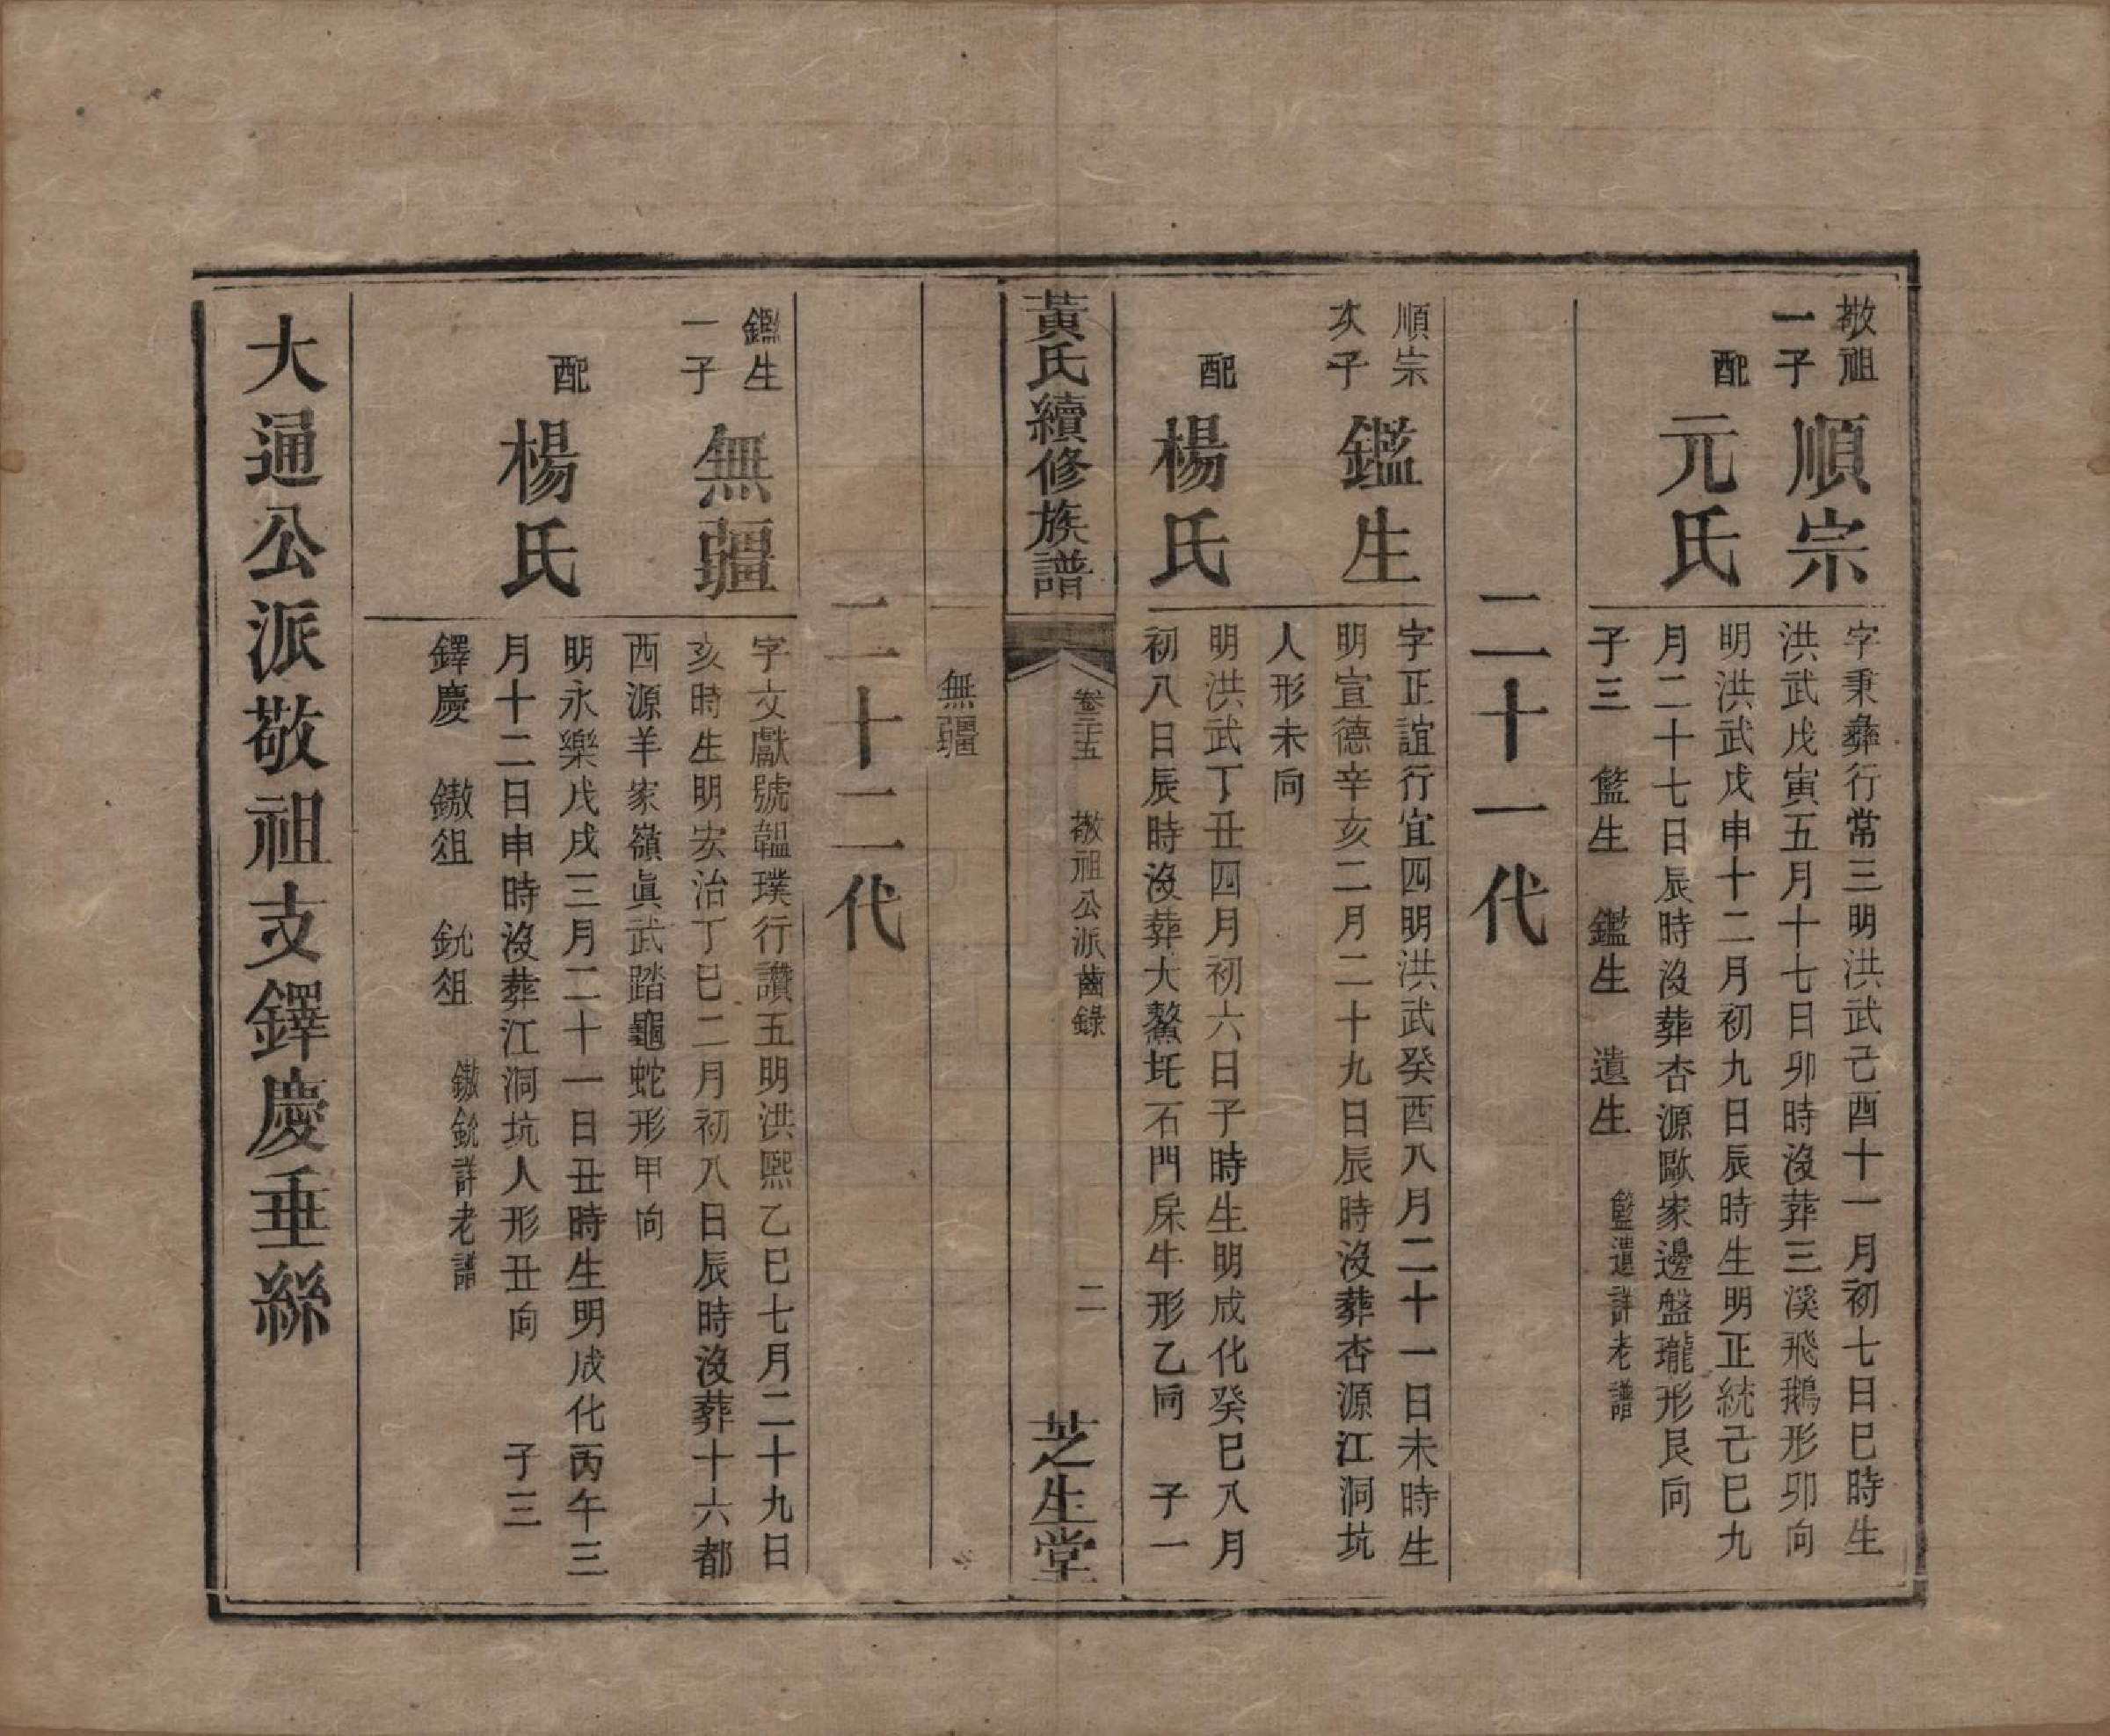 敬祖
一子
順宗
字秉彝行常三明洪武己酉十一月初七日巳時生
洪武戊寅五月十七日卯時沒葬三溪飛鵝形卯向
配
元氏
明洪武戊申十二月初九日辰時生明正統己巳九
月二十七日辰時沒葬杏源歐家邊盤瓏形艮向
子三 鑑生 鑑生 遺生 遺詳老譜
二十一代
順宗
次子
鑑生
字正誼行宜四明洪武癸酉八月二十一日未時生
明宣德辛亥二月二十九日辰時沒葬杏源江洞坑
人形未向
配
楊氏
明洪武丁丑四月初六日子時生明成化癸巳八月
初八日辰時沒葬大鰲圫石門杲牛形乙向 子一
黃氏續修族譜
卷三五 敬祖公派齒錄 二
芝生堂
無疆
二十二代
鑑生
一子
無疆
字文獻號韞璞行讚五明洪熙乙巳七月二十九日
亥時生明宏治丁巳二月初八日辰時沒葬十六都
西源羊家嶺眞武踏龜蛇形甲向
配
楊氏
明永樂戊戌三月二十一日丑時生明成化丙午三
月十二日申時沒葬江洞坑人形丑向 子三
鐸慶 鏾俎 銃俎 鏾銃詳老譜
大通公派敬祖支鐸慶垂絲